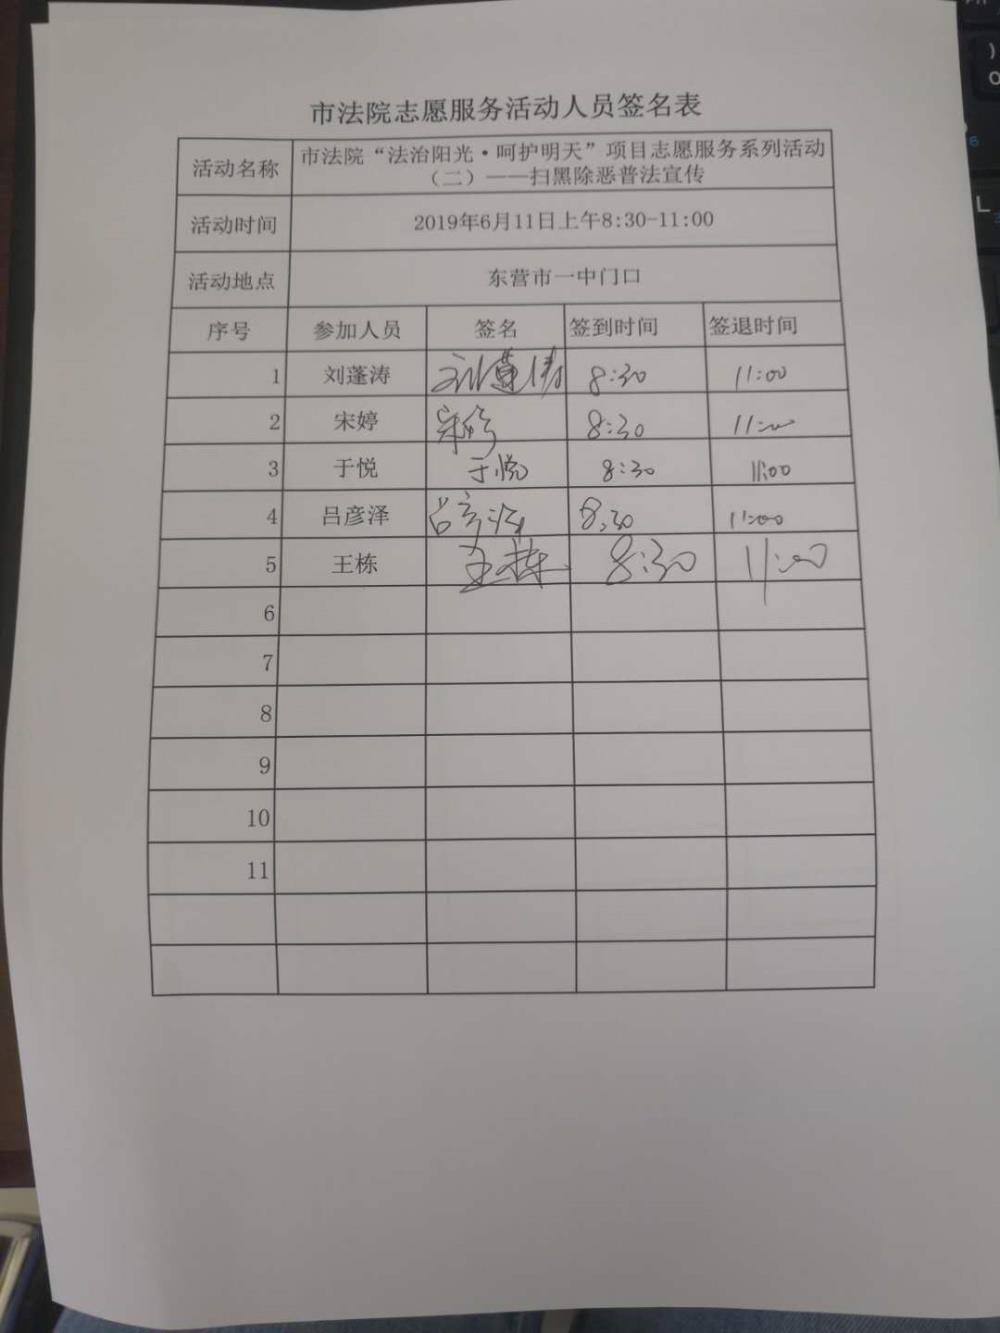 市法院志愿服务活动人员签名表
活动名称 市法院“法治阳光·呵护明天”项目志愿服务系列活动
（二）——扫黑除恶普法宣传
活动时间 2019年6月11日上午8:30-11:00
活动地点 东营市一中门口
序号 参加人员 签名 签到时间 签退时间
1 刘蓬涛 刘蓬涛 8:30 11:00
2 宋婷 宋婷 8:30 11:00
3 于悦 于悦 8:30 11:00
4 吕彦泽 吕彦泽 8:30 11:00
5 王栋 王栋 8:30 11:00
6
7
8
9
10
11